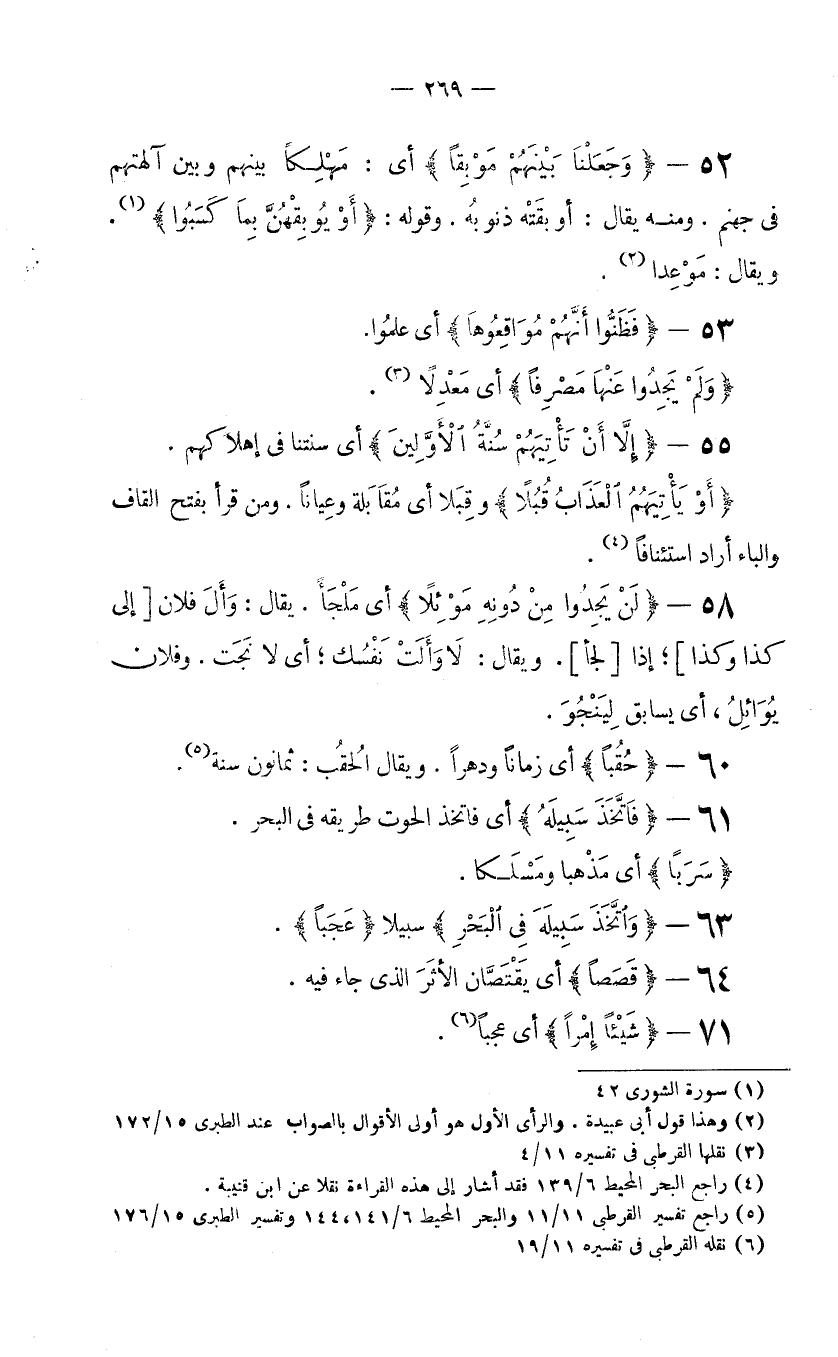 — ٢٦٩ —
٥٢ — ﴿ وَجَعَلْنَا بَيْنَهُمْ مَوْبِقاً ﴾ أى : مَهْلِكاً بينهم وبين آلهتهم
فى جهنم . ومنه يقال : أوبقَتْه ذنوبُه . وقوله : ﴿ أَوْ يُوبِقْهُنَّ بِمَا كَسَبُوا ﴾ (١) .
ويقال : مَوْعِدا (٢) .
٥٣ — ﴿ فَظَنُّوا أَنَّهُمْ مُوَاقِعُوهَا ﴾ أى علمُوا.
﴿ وَلَمْ يَجِدُوا عَنْهَا مَصْرِفاً ﴾ أى مَعْدِلًا (٣) .
٥٥ — ﴿ إِلَّا أَنْ تَأْتِيَهُمْ سُنَّةُ ٱلْأَوَّلِينَ ﴾ أى سنتنا فى إهلاكهم .
﴿ أَوْ يَأْتِيَهُمُ ٱلْعَذَابُ قُبُلًا ﴾ وقِبَلا أى مُقَابلة وعِياناً . ومن قرأ بفتح القاف
والباء أراد استئنافاً (٤) .
٥٨ — ﴿ لَنْ يَجِدُوا مِنْ دُونِهِ مَوْئِلًا ﴾ أى مَلْجَأً . يقال : وَأَلَ فلان [ إلى
كذا وكذا ] ؛ إذا [ لجأ ] . ويقال : لَا وَأَلَتْ نَفْسُك ؛ أى لا نَجَت . وفلان
يُوَائِلُ ، أى يسابق لِيَنْجُوَ .
٦٠ — ﴿ حُقُباً ﴾ أى زماناً ودهراً . ويقال الُحقُب : ثمانون سنة (٥) .
٦١ — ﴿ فَاتَّخَذَ سَبِيلَهُ ﴾ أى فاتخذ الحوت طريقه فى البحر .
﴿ سَرَبًا ﴾ أى مَذْهبا ومَسْلَكا .
٦٣ — ﴿ وَٱتَّخَذَ سَبِيلَهُ فِي ٱلْبَحْرِ ﴾ سبيلا ﴿ عَجَباً ﴾ .
٦٤ — ﴿ قَصَصاً ﴾ أى يَقْتَصَّان الأثَرَ الذى جاء فيه .
٧١ — ﴿ شَيْئًا إِمْراً ﴾ أى عجباً (٦) .
(١) سورة الشورى ٤٢
(٢) وهذا قول أبى عبيدة . والرأى الأول هو أولى الأقوال باالصواب عند الطبرى ١٧٢/١٥
(٣) نقلها القرطى فى تفسيره ٤/١١
(٤) راجع البحر المحيط ١٣٩/٦ فقد أشار إلى هذه القراءة نقلا عن ابن قتيبة .
(٥) راجع تفسير القرطبى ١١/١١ والبحر المحيط ١٤٤،١٤١/٦ وتفسير الطبرى ١٧٦/١٥
(٦) نقله القرطبى فى تفسيره ١٩/١١